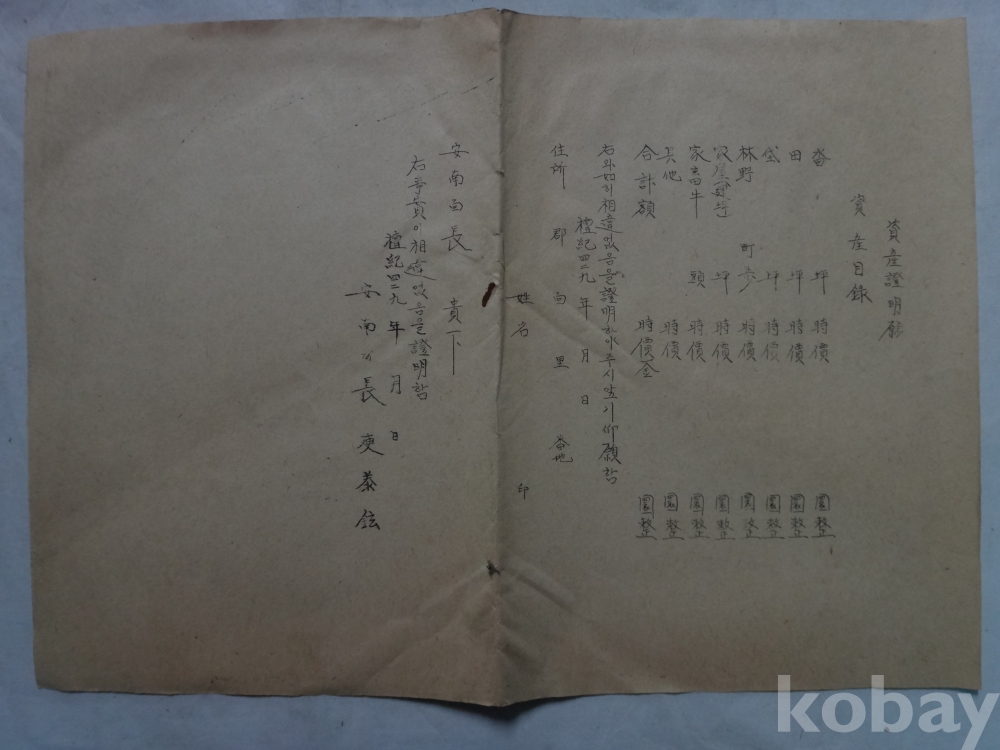 資産證明願
資産目錄
畓 坪 時價 圜整
田 坪 時價 圜整
垈 坪 時價 圜整
林野 町步 時價 圜整
家屋建坪 坪 時價 圜整
家畜牛 頭 時價 圜整
其他 時價 圜整
合計額 時價金 圜整
右와如히相違없음을證明하야주시압기仰願함
檀紀四二九 年 月 日
住所 郡 面 里 番地
姓名 印
安南面長 貴下
右事實이相違없음을證明함
檀紀四二九 年 月 日
安南面長
kobay